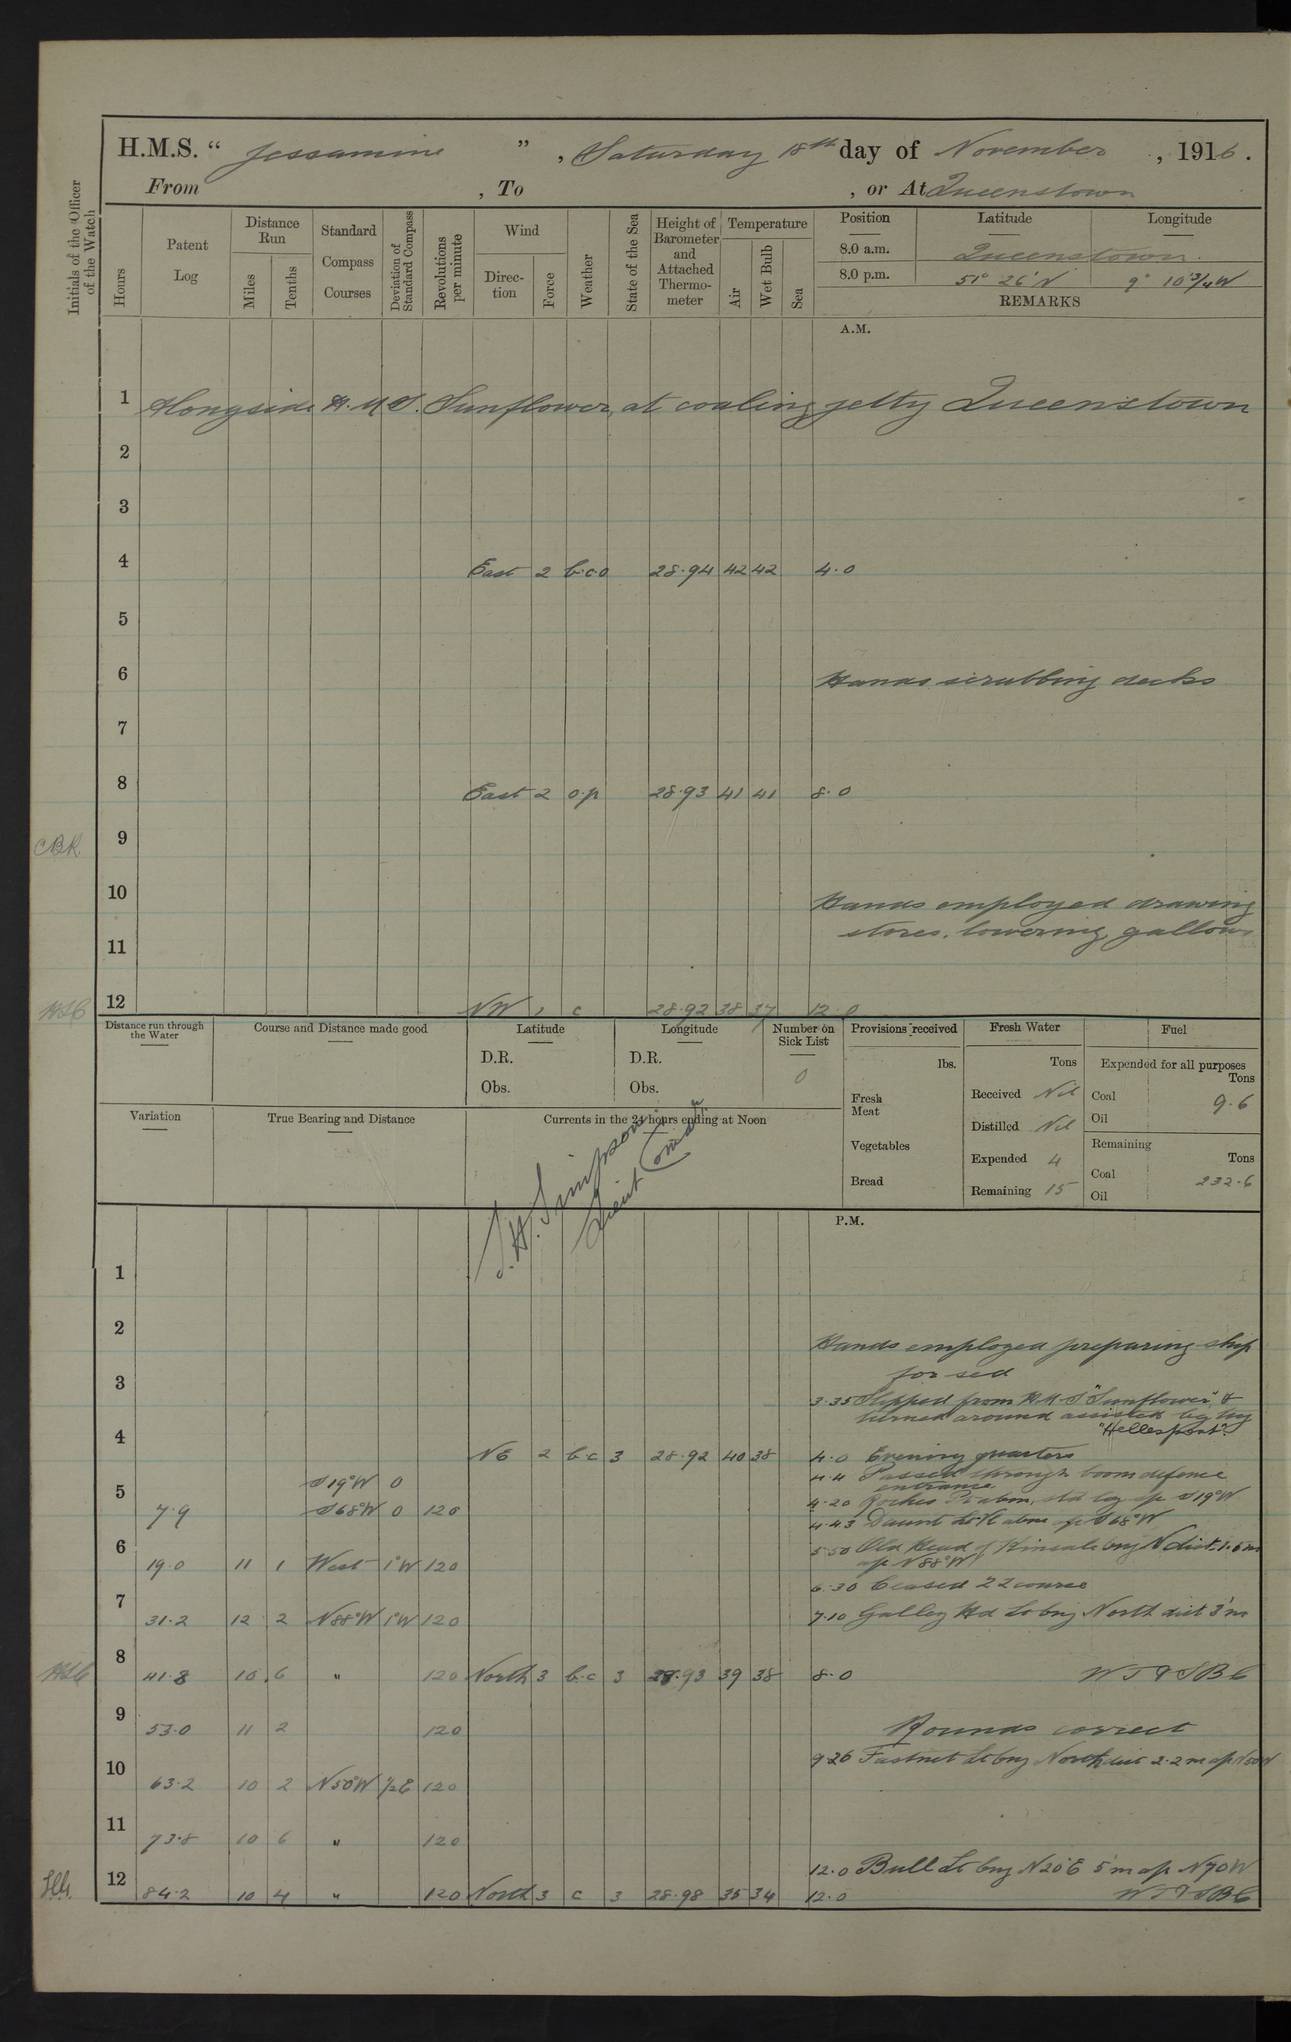 H.M.S. “ Jessamine ” , Saturday 18th day of November , 1916.
From , To , or At Queenstown
Initials of the Officer of the Watch
Hours
Patent Log
Distance Run
Miles
Tenths
Standard Compass Courses
Deviation of Standard Compass
Revolutions per minute
Wind
Direction
Force
Weather
State of the Sea
Height of Barometer and Attached Thermometer
Temperature
Air
Wet Bulb
Sea
Position Latitude Longitude
8.0 a.m. Queenstown.
8.0 p.m. 51° 26' N 9° 10¾ W
REMARKS
A.M.
1 Alongside H.M.S. Sunflower, at coaling jetty Queenstown
2
3
4 East 2 b.c.o 28.94 42 42 4.0
5
6 Hands scrubbing decks
7
8 East 2 o.p 28.93 41 41 8.0
CBR. 9
10 Hands employed drawing
stores. lowering gallows
11
12 NW 1 c 28.92 38 37 12.0
Distance run through the Water
Course and Distance made good
Latitude
D.R.
Obs.
Longitude
D.R.
Obs.
Number on Sick List
0
Provisions received
lbs.
Fresh Meat
Vegetables
Bread
Fresh Water
Tons
Received Nil
Distilled Nil
Expended 4
Remaining 15
Fuel
Expended for all purposes
Tons
Coal 9.6
Oil
Remaining
Tons
Coal 232.6
Oil
Variation
True Bearing and Distance
Currents in the 24 hours ending at Noon
S.H. Simpson
Lieut Comdr
P.M.
1
2
Hands employed preparing ship
for sea
3
3.35 Slipped from H.M.S "Sunflower" &
turned around assisted by tug
"Hellespont".
4 NE 2 b.c 3 28.92 40 38 4.0 Evening quarters
4.4 Passed through boom defence
entrance
5 S19°W 0
4.20 Roches Pt abm, std log a/c S19°W
7.9 S68°W 0 120
4.43 Daunt Lt V abm a/c S68°W
6 5.50 Old Head of Kinsale brg N dist. 1.6m
a/c N88°W
19.0 11 1 West 1°W 120
6.30 Ceased ZZ course
7 31.2 12 2 N88°W 1°W 120 7.10 Galley Hd Lt brg North dist 3'm
8 41.8 10 .6 " 120 North 3 b.c 3 28.93 39 38 8.0 W T & S B C
9 53.0 11 2 120 Rounds correct
9.26 Fastnet Lt brg North dist 2.2m a/c N50W
10 63.2 10 2 N50°W ½E 120
11 73.8 10 6 " 120
12.0 Bull Lt brg N20°E 5'm a/c N70W
12 84.2 10 4 " 120 North 3 c 3 28.98 35 34 12.0 W T & S B C